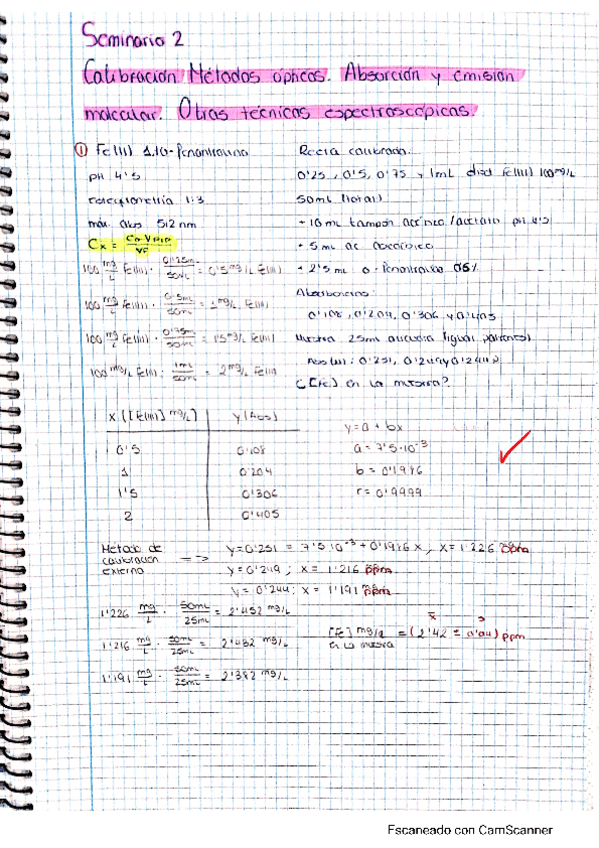 Seminario 2
Calibración Métodos ópticos. Absorción y emisión
molecular. Otras técnicas espectroscópicas.
① Fe(II) 1,10-fenantrolina
pH 4'5
estequiometría 1:3
máx. abs 512 nm
Cx =
100 mg/L Fe(II) · 0'25mL/50mL = 0'5 mg/L Fe(II)
100 mg/L Fe(II) · 0'5mL/50mL = 1 mg/L Fe(II)
100 mg/L Fe(II) · 0'75mL/50mL = 1'5 mg/L Fe(II)
100 mg/L Fe(II) · 1mL/50mL = 2 mg/L Fe(II)
Recta calibrado:
0'25, 0'5, 0'75 y 1mL Fe(II) 100mg/L
50mL (total)
+ 10 mL tampón acético/acetato pH 4'5
+ 5 mL ac ascórbico
+ 2'5 mL o-fenantrolina
Absorbancias:
0'108, 0'204, 0'306 y 0'405
Muestra 25mL alícuota (igual patrones)
Abs(M): 0'251, 0'249 y 0'244
¿[Fe] en la muestra?
X ([Fe(II)] mg/L) y (Abs)
0'5 0'108
1 0'204
1'5 0'306
2 0'405
y = a + bx
a = 7'5·10⁻³
b = 0'1986
r = 0'9999
Método de calibración externo => y = 0'251 = 7'5·10⁻³ + 0'1986 x, x = 1'226 ppm
y = 0'249; x = 1'216 ppm
y = 0'244; x = 1'191 ppm
1'226 mg/L · 50mL/25mL = 2'452 mg/L
1'216 mg/L · 50mL/25mL = 2'432 mg/L
1'191 mg/L · 50mL/25mL = 2'382 mg/L
x̄ s
= (2'42 ± 0'04) ppm
en la muestra
Escaneado con CamScanner